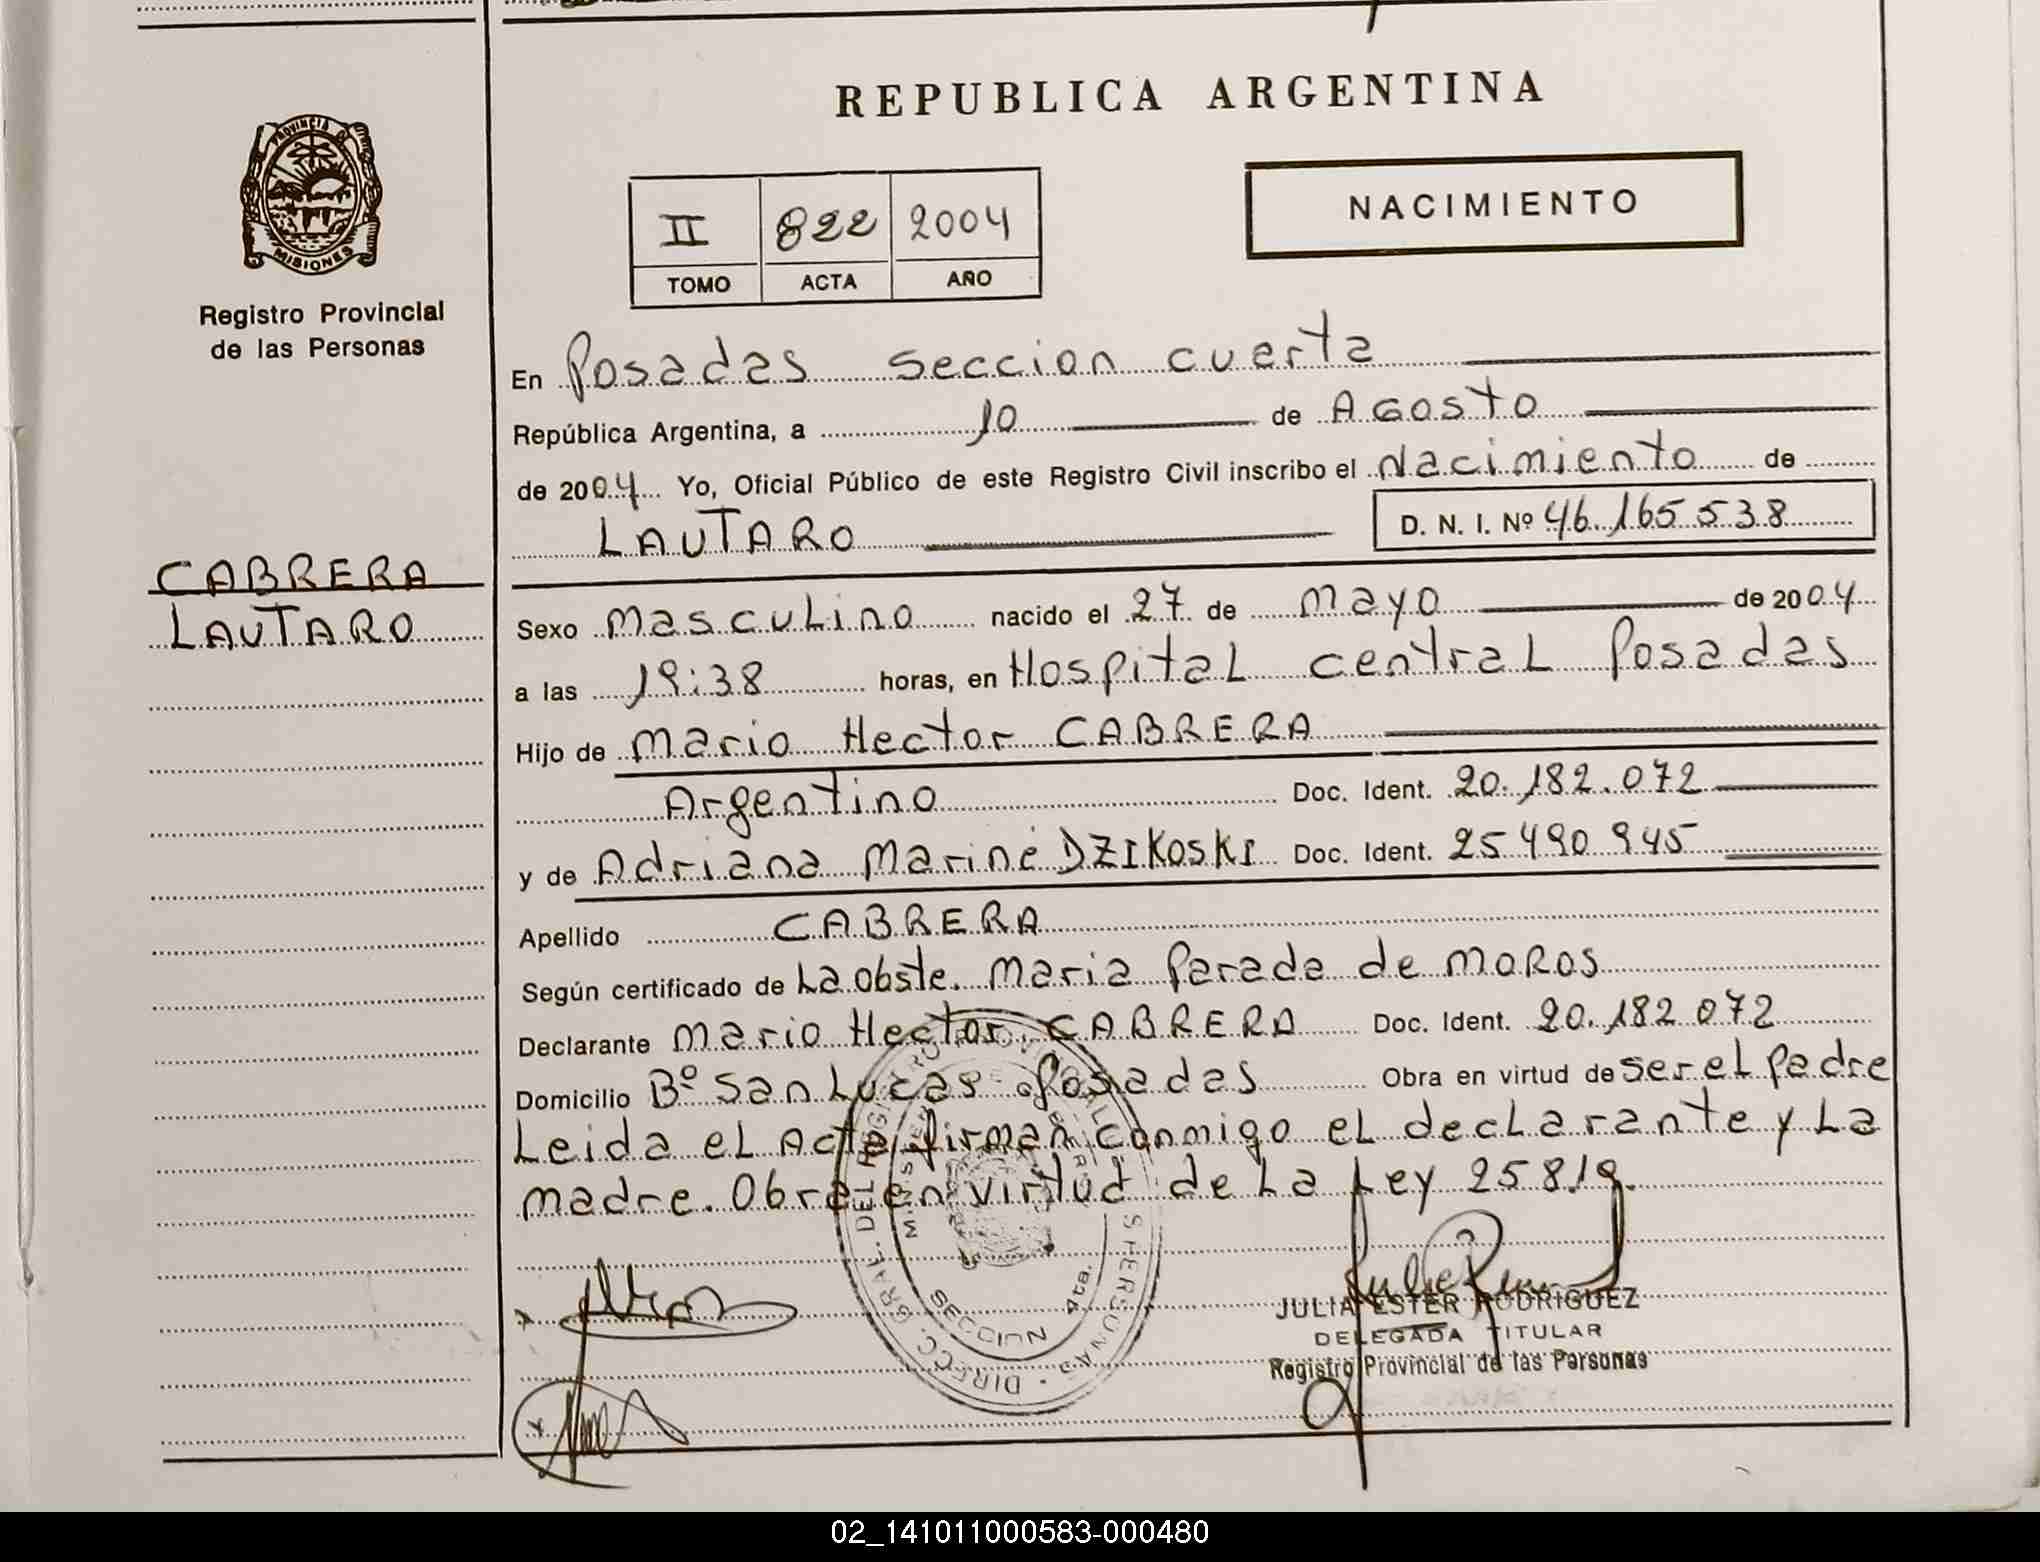 REPUBLICA ARGENTINA
PROVINCIA DE
MISIONES
Registro Provincial
de las Personas
NACIMIENTO
II 822 2004
TOMO ACTA AÑO
En Posadas seccion cuarta
República Argentina, a 10 de Agosto
de 2004 Yo, Oficial Público de este Registro Civil inscribo el Nacimiento de
LAUTARO D. N. I. Nº 46.165538
CABRERA
LAUTARO
Sexo masculino nacido el 27 de mayo de 2004
a las 19:38 horas, en Hospital central Posadas
Hijo de Mario Hector CABRERA
Argentino Doc. Ident. 20.182.072
y de Adriana Mariné DZIKOSKI Doc. Ident. 25490945
Apellido CABRERA
Según certificado de La obste. Maria Parada de MOROS
Declarante Mario Hector CABRERA Doc. Ident. 20.182072
Domicilio Bº San Lucas Posadas Obra en virtud de ser el padre
Leida el Acta firman conmigo el declarante y La
madre. Obra en virtud de La Ley 25819.
SECCION 4ta.
JULIA ESTER RODRIGUEZ
DELEGADA TITULAR
Registro Provincial de las Personas
02_141011000583-000480